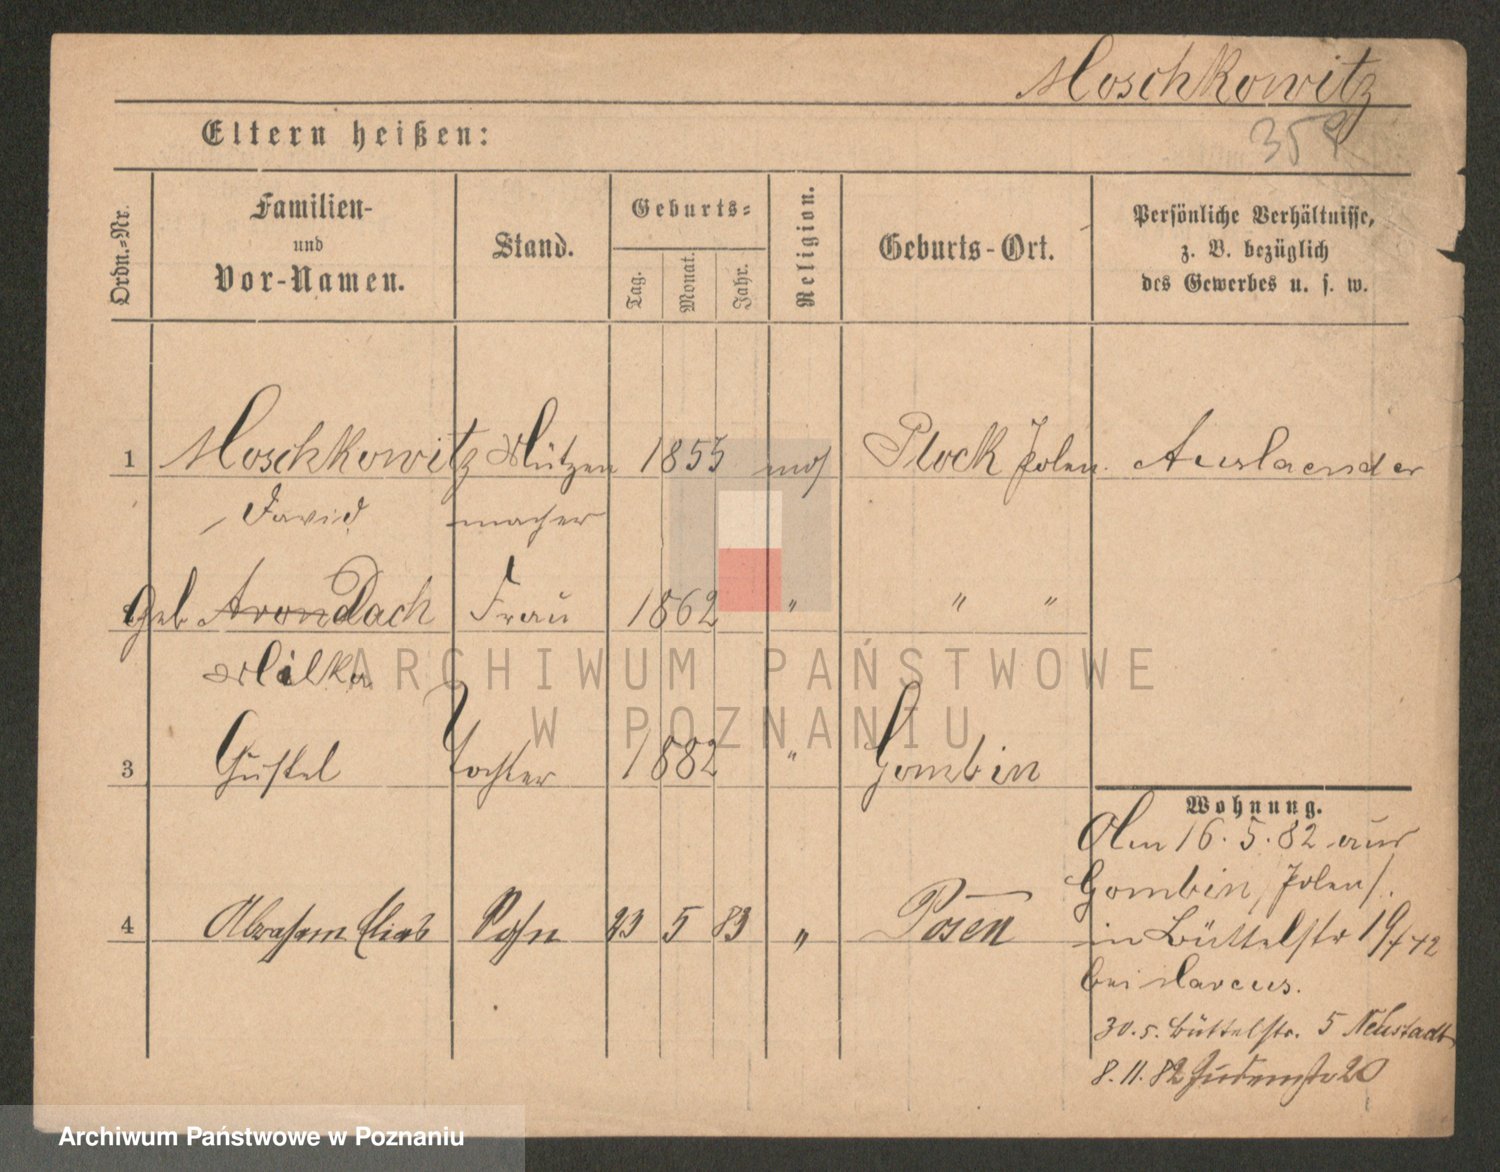 Moschkowitz
359
Eltern heißen:
Ordn.-Nr.
Familien-
und
Vor-Namen.
Stand.
Geburts-
Tag.
Monat.
Jahr.
Religion.
Geburts-Ort.
Persönliche Verhältnisse,
z. B. bezüglich
des Gewerbes u. s. w.
1 Moschkowitz Mützen 1855 mos Plock Polen. Auslaender
David macher
Geb Aron Dach Frau 1862 " " "
Milka
ARCHIWUM PAŃSTWOWE
W POZNANIU
3 Gustel Tochter 1882 " Gombin
Wohnung.
Am 16.5.82 aus
Gombin /Polen/.
4 Abraham Elias Sohn 23 5 83 " Posen
in Büttelstr 19
bei Marcus.
30.5. Büttelstr. 5 Neustadt
8.11.82 Judenstr 20
Archiwum Państwowe w Poznaniu